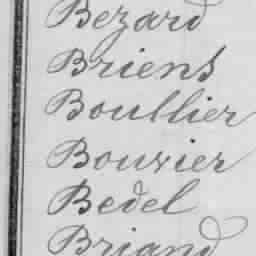 Bezard
Briens
Boullier
Bouvier
Bedel
Briand